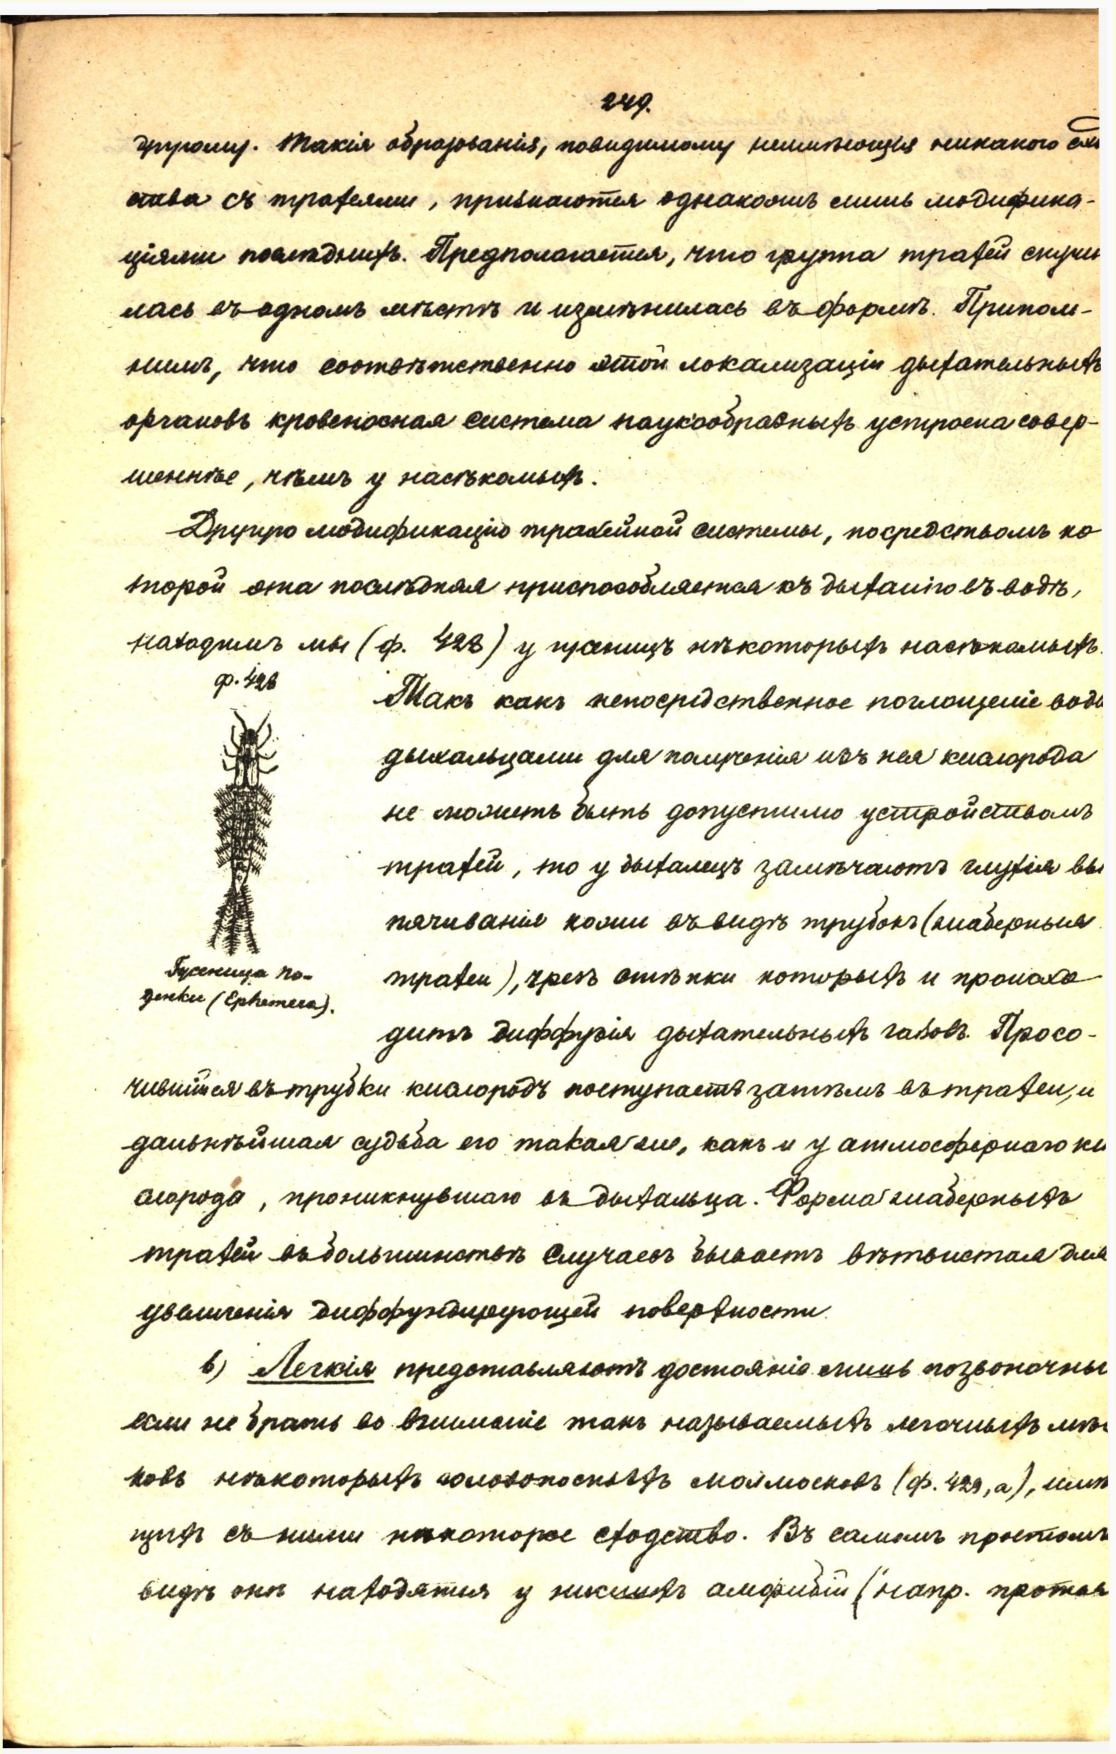 249.
другому. Такія образованія, повидимому неимѣющія никакого сход
ства съ трахеями, признаются однакожъ лишь модифика-
ціями послѣднихъ. Предполагается, что группа трахей скучи
лась въ одномъ мѣстѣ и измѣнилась въ формѣ. Припом-
нимъ, что соотвѣтственно этой локализаціи дыхательныхъ
органовъ кровеносная система паукообразныхъ устроена совер-
шеннѣе, чѣмъ у насѣкомыхъ.
Другую модификацію трахейной системы, посредствомъ ко
торой эта послѣдняя приспособляется къ дыханію въ водѣ,
находимъ мы (ф. 428) у гусеницъ нѣкоторыхъ насѣкомыхъ.
ф. 428
Гусеница по-
денки (Ephemera).
Такъ какъ непосредственное поглощеніе воды
дыхальцами для полученія изъ нея кислорода
не можетъ быть допустимо устройствомъ
трахей, то у дыхалецъ замѣчаютъ глухія вы
пячиванія кожи въ видѣ трубокъ (жаберныя
трахеи), чрезъ стѣнки которыхъ и происхо
дитъ диффузія дыхательныхъ газовъ. Просо-
чившійся въ трубки кислородъ поступаетъ затѣмъ въ трахеи, и
дальнѣйшая судьба его такая же, какъ и у атмосфернаго ки
слорода, проникнувшаго въ дыхальца. Форма жаберныхъ
трахей въ большинствѣ случаевъ бываетъ вѣтвистая для
увеличенія диффундирующей поверхности.
в) Легкія представляютъ достояніе лишь позвоночны
если не брать во вниманіе такъ называемыхъ легочныхъ мѣш
ковъ нѣкоторыхъ головоногихъ моллюсковъ (ф. 429, а), имѣ
щихъ съ ними нѣкоторое сходство. Въ самомъ простомъ
видѣ они находятся у низшихъ амфибій (напр. протея